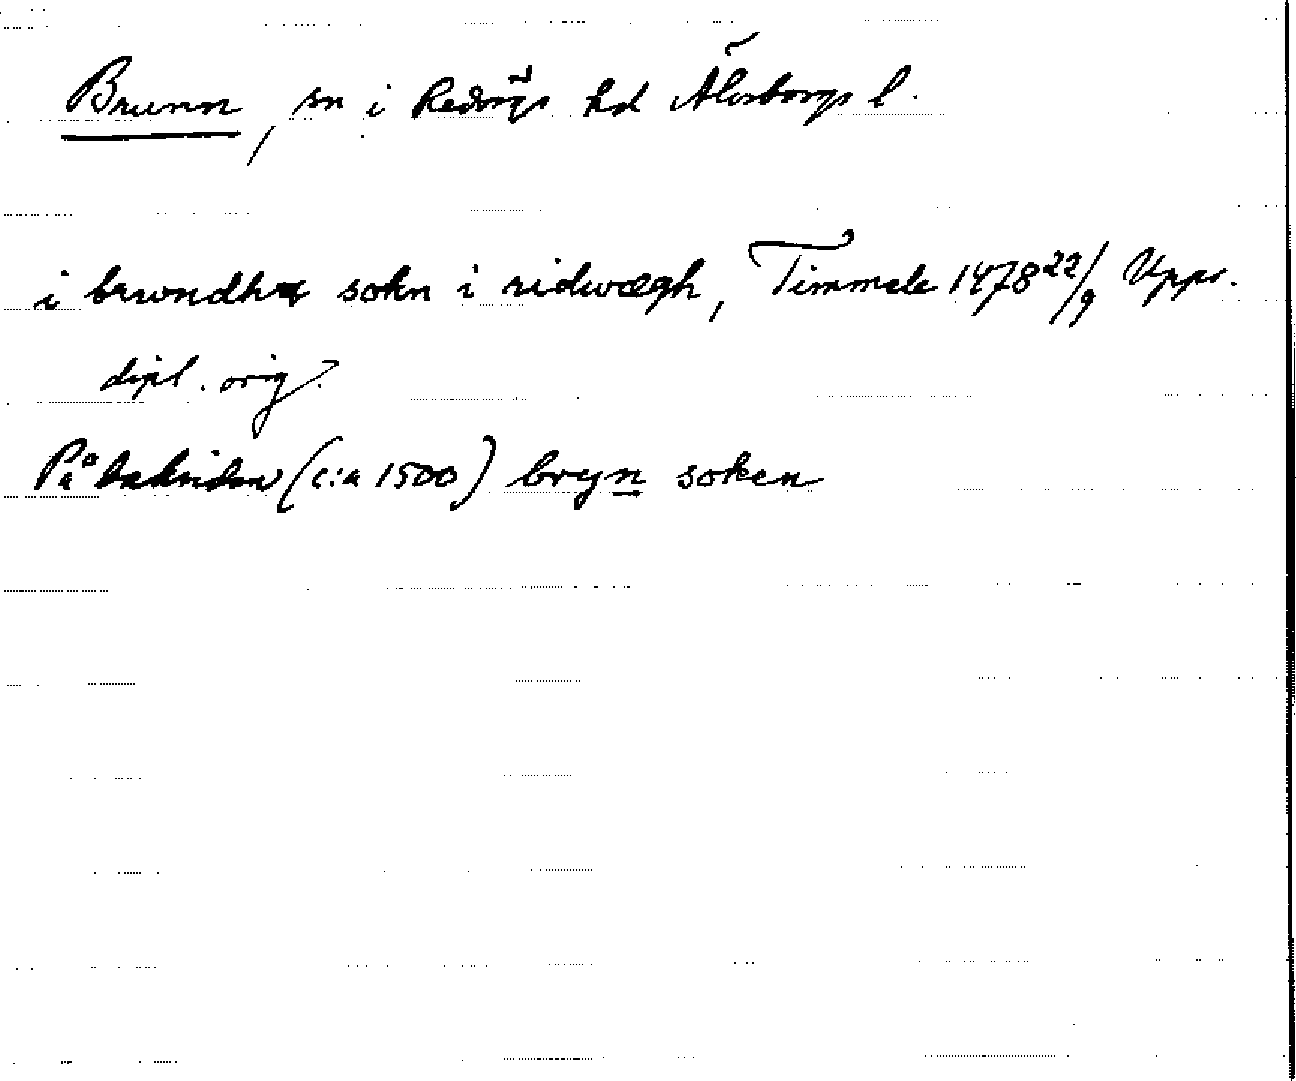 Brunn, sn i Redvägs hd Älvsborgs l.
i brwndha sokn i ridwægh, Timmele 1478 22/9 Upps.
dipl. orig.
På baksidan (c:a 1500) bryn soken